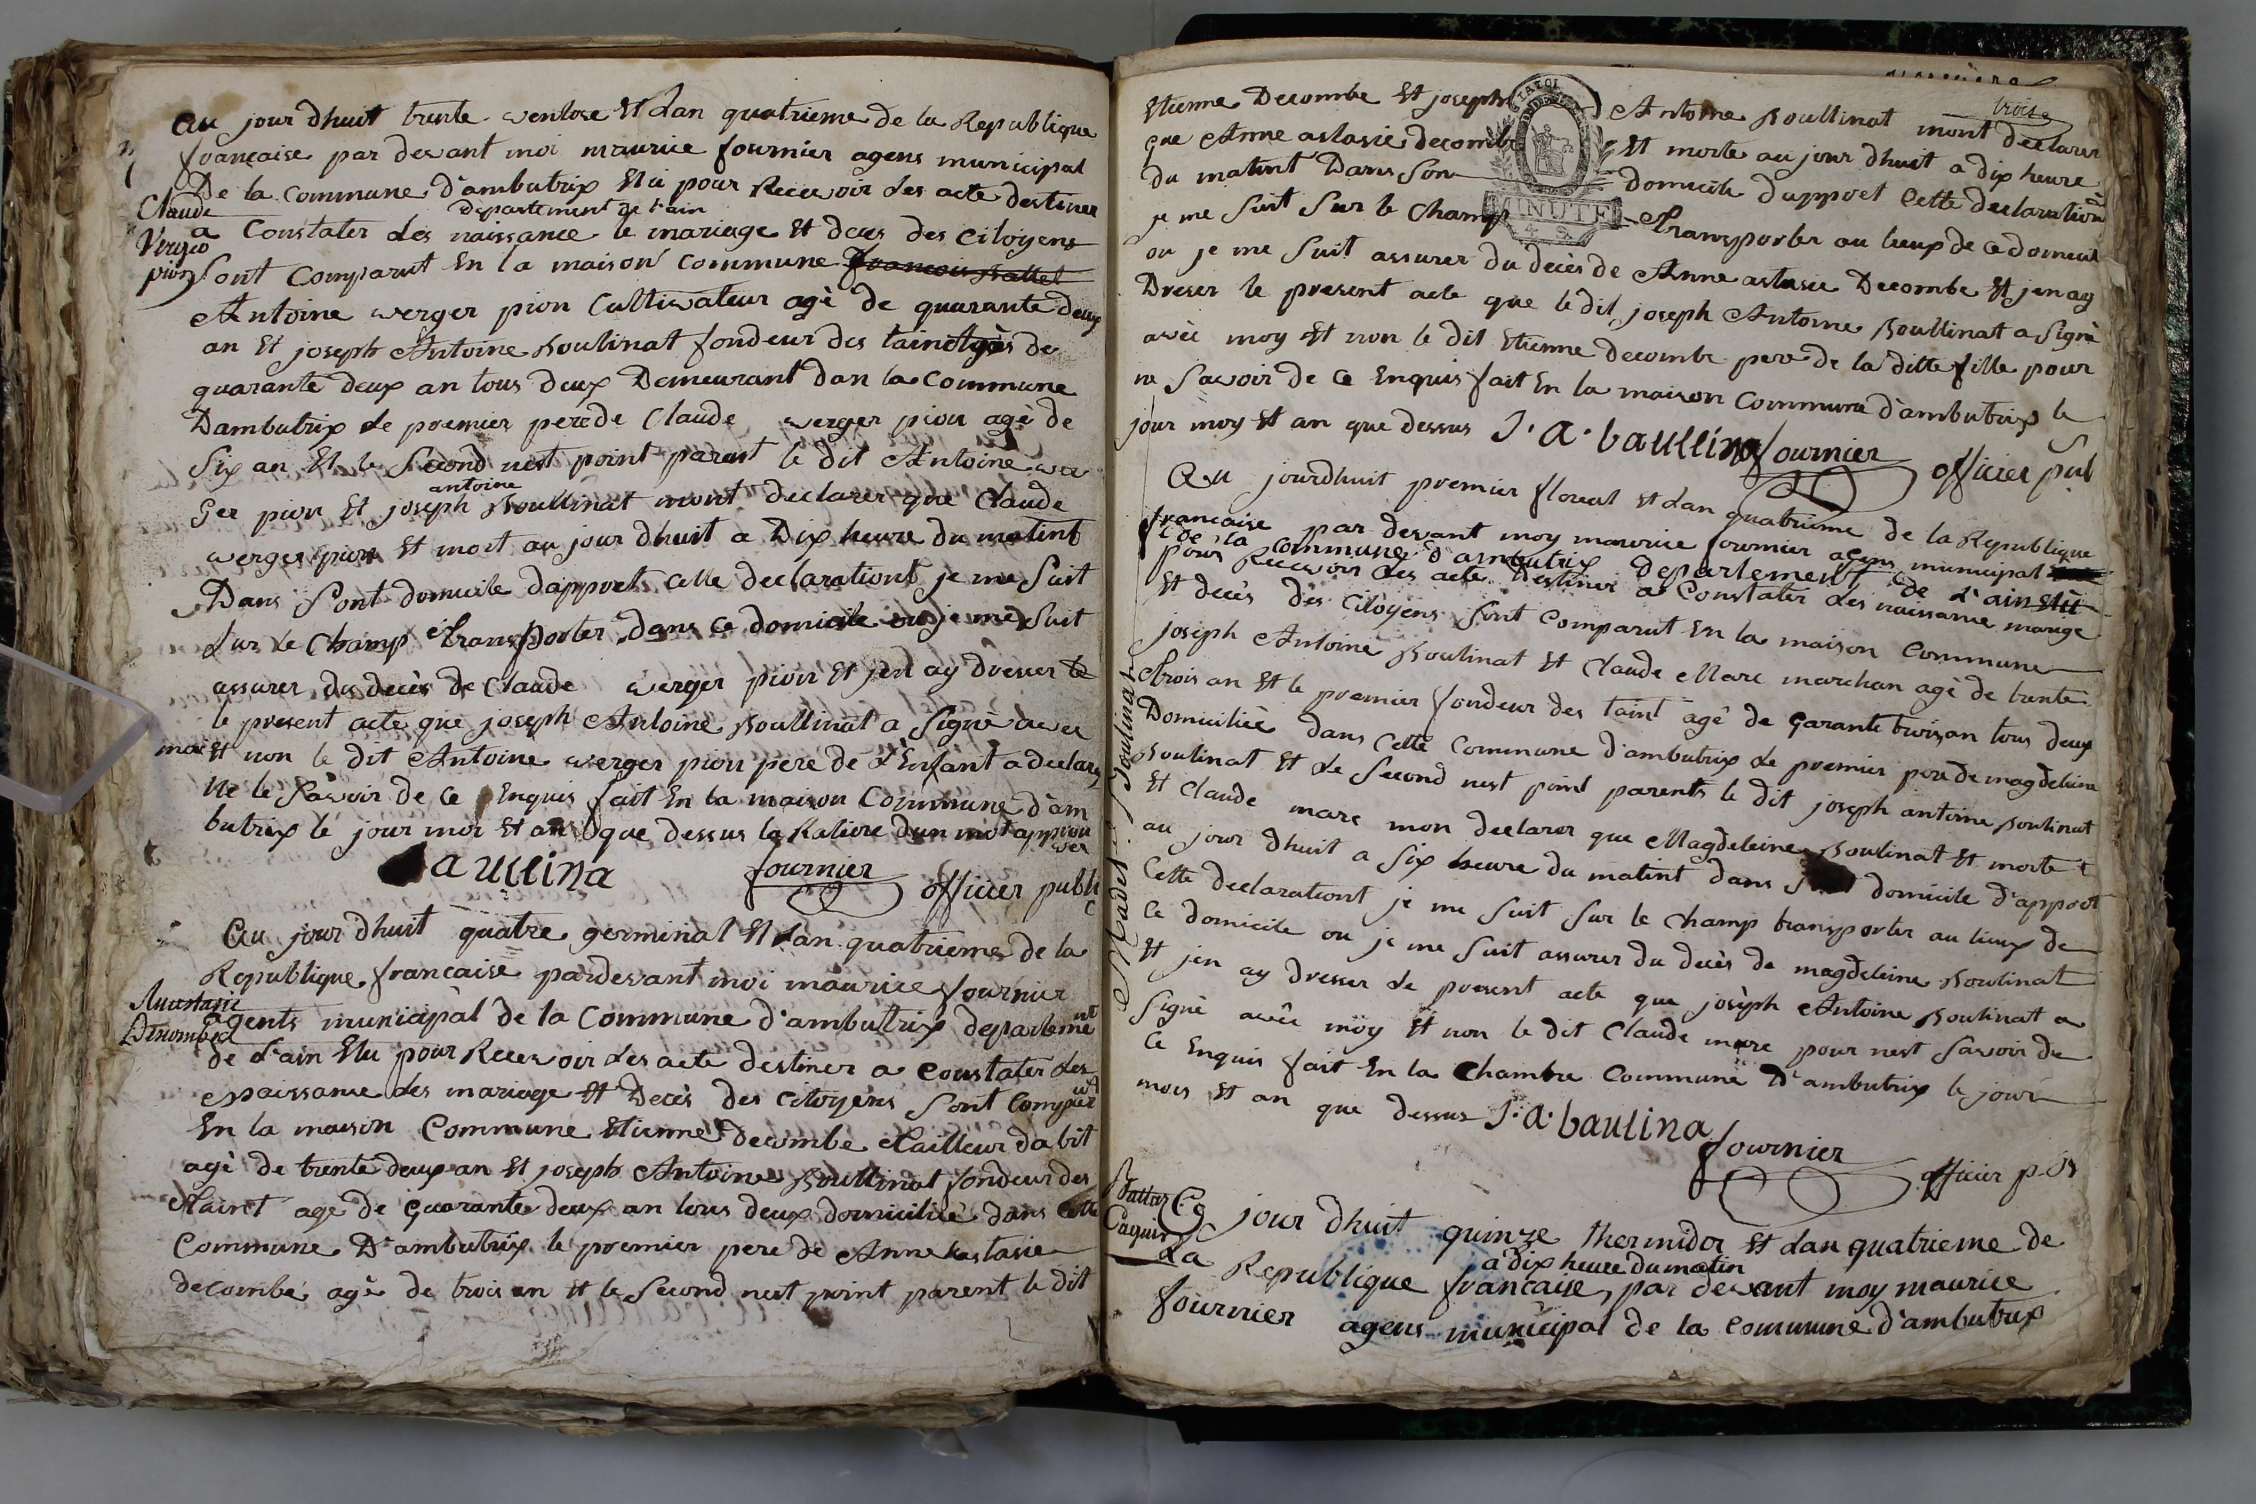 Au jour dhuit trente ventose Et Lan quatrieme de la Republique
francaise par devant moi maurice fournier agens municipal
De la Commune d'ambutrix Elu pour Recevoir les acte destiner
departement de l'ain
Claude
Verger
pion
a Constater les naissance le mariage Et deces des Citoyens
Sont Comparut En la maison Commune francois
Antoine werger pion Cultivateur agè de quarante deux
an Et joseph Antoine Boulinat fondeur des taint agès de
quarante deux an tous deux Demeurant dan la Commune
Dambutrix Le premier pere de Claude werger pion agè de
Six an Et le Second nest point parent le dit Antoine wer
antoine
ger pion Et joseph Boullinat mont declarer que Claude
werger pion Et mort au jour dhuit a Dix heure du matint
Dans Sont domicile dapport Cette declarationt je me Suit
Sur Le Champ transporter Dans ce domicile ou je me Suit
assurer du decès de Claude werger pion Et jen ay dresser le
le present acte que joseph Antoine Boullinat a Signè avec
moi Et non le dit Antoine werger pion pere de L'Enfant a declarer
Ne le Savoir de Ce Enquis fait En la maison Commune d'am
butrix le jour moi Et an que dessus la Rature dun mot approu
ver
Baullina fournier officier public
Au jour dhuit quatre germinal Et Lan quatrieme de la
Republique francaise pardevant moi maurice fournier
Anastasie
Decombe
agents municipàl de la Commune d'ambutrix departement
de L'ain Elu pour Recevoir les acte destiner a Constater les
naissance les mariage Et Decès des Citoyens Sont Comparut
En la maison Commune Etienne decombe tailleur dabit
agè de trente deux an Et joseph Antoine Boullinat fondeur des
taint age de quarante deux an tous deux domiciliè dans Cette
Commune D'ambutrix le premier pere de Anne astasie
decombe agè de trois an Et le Second nest point parent le dit
trois
Etienne Decombe Et joseph Antoine Boullinat mont declarer
que Anne astasie decombe Et morte au jour dhuit a dix heure
du matint Dans Son domicile dapport Cette declaration
je me Suit Sur le Champ transporter au lieux de ce domicil
MINUTE
ou je me Suit assurer du decès de Anne astasie Decombe Et jen ay
Dreser le present acte que le dit joseph Antoine Boullinat a Signè
avec moy Et non le dit Etienne decombe pere de la ditte fille pour
ne Savoir de Ce Enquis fait En la maison Commune d'ambutrix le
jour moy Et an que dessus J. a. baullina fournier officier pub
Au jourdhuit premier floreal Et Lan quatrieme de la Republique
francaise par devant moy maurice fournier agens municipal
de la Commune d'ambutrix departement de L'ain Elu
pour Recevoir les acte Destiner a Constater les naissance marige
Et decès des Citoyens Sont Comparut En la maison Commune
joseph Antoine Boulinat Et Claude Marc marchan agè de trente
trois an Et le premier fondeur des taint agè de garante trois an tous deux
Domiciliée dans Cette Commune d'ambutrix Le premier pere de magdeleine
Boulinat Et Le Second nest point parents le dit joseph antoine Boulinat
Et Claude marc mon declarer que Magdeleine Boulinat Et morte
au jour dhuit a Six heure du matint dans domicile d'apport
Cette declarationt je me Suit Sur le Champ transporter au lieux de
Ce domicile ou je me Suit assurer du decès de magdeleine Boulinat
Et jen ay dresser Le present acte que josèph Antoine Boulinat a
Signè avec moy Et non le dit Claude marc pour nest Savoir de
Ce Enquis fait En la Chambre Commune D'ambutrix le jour
mois Et an que dessus J. a. baulina
fournier officier
Boulinat
Ce jour dhuit quinze thermidor Et Lan quatrieme de
a dix heure du matin
La Republique francaise, par devant moy maurice
fournier agens municipal de la Commune d'ambutrix